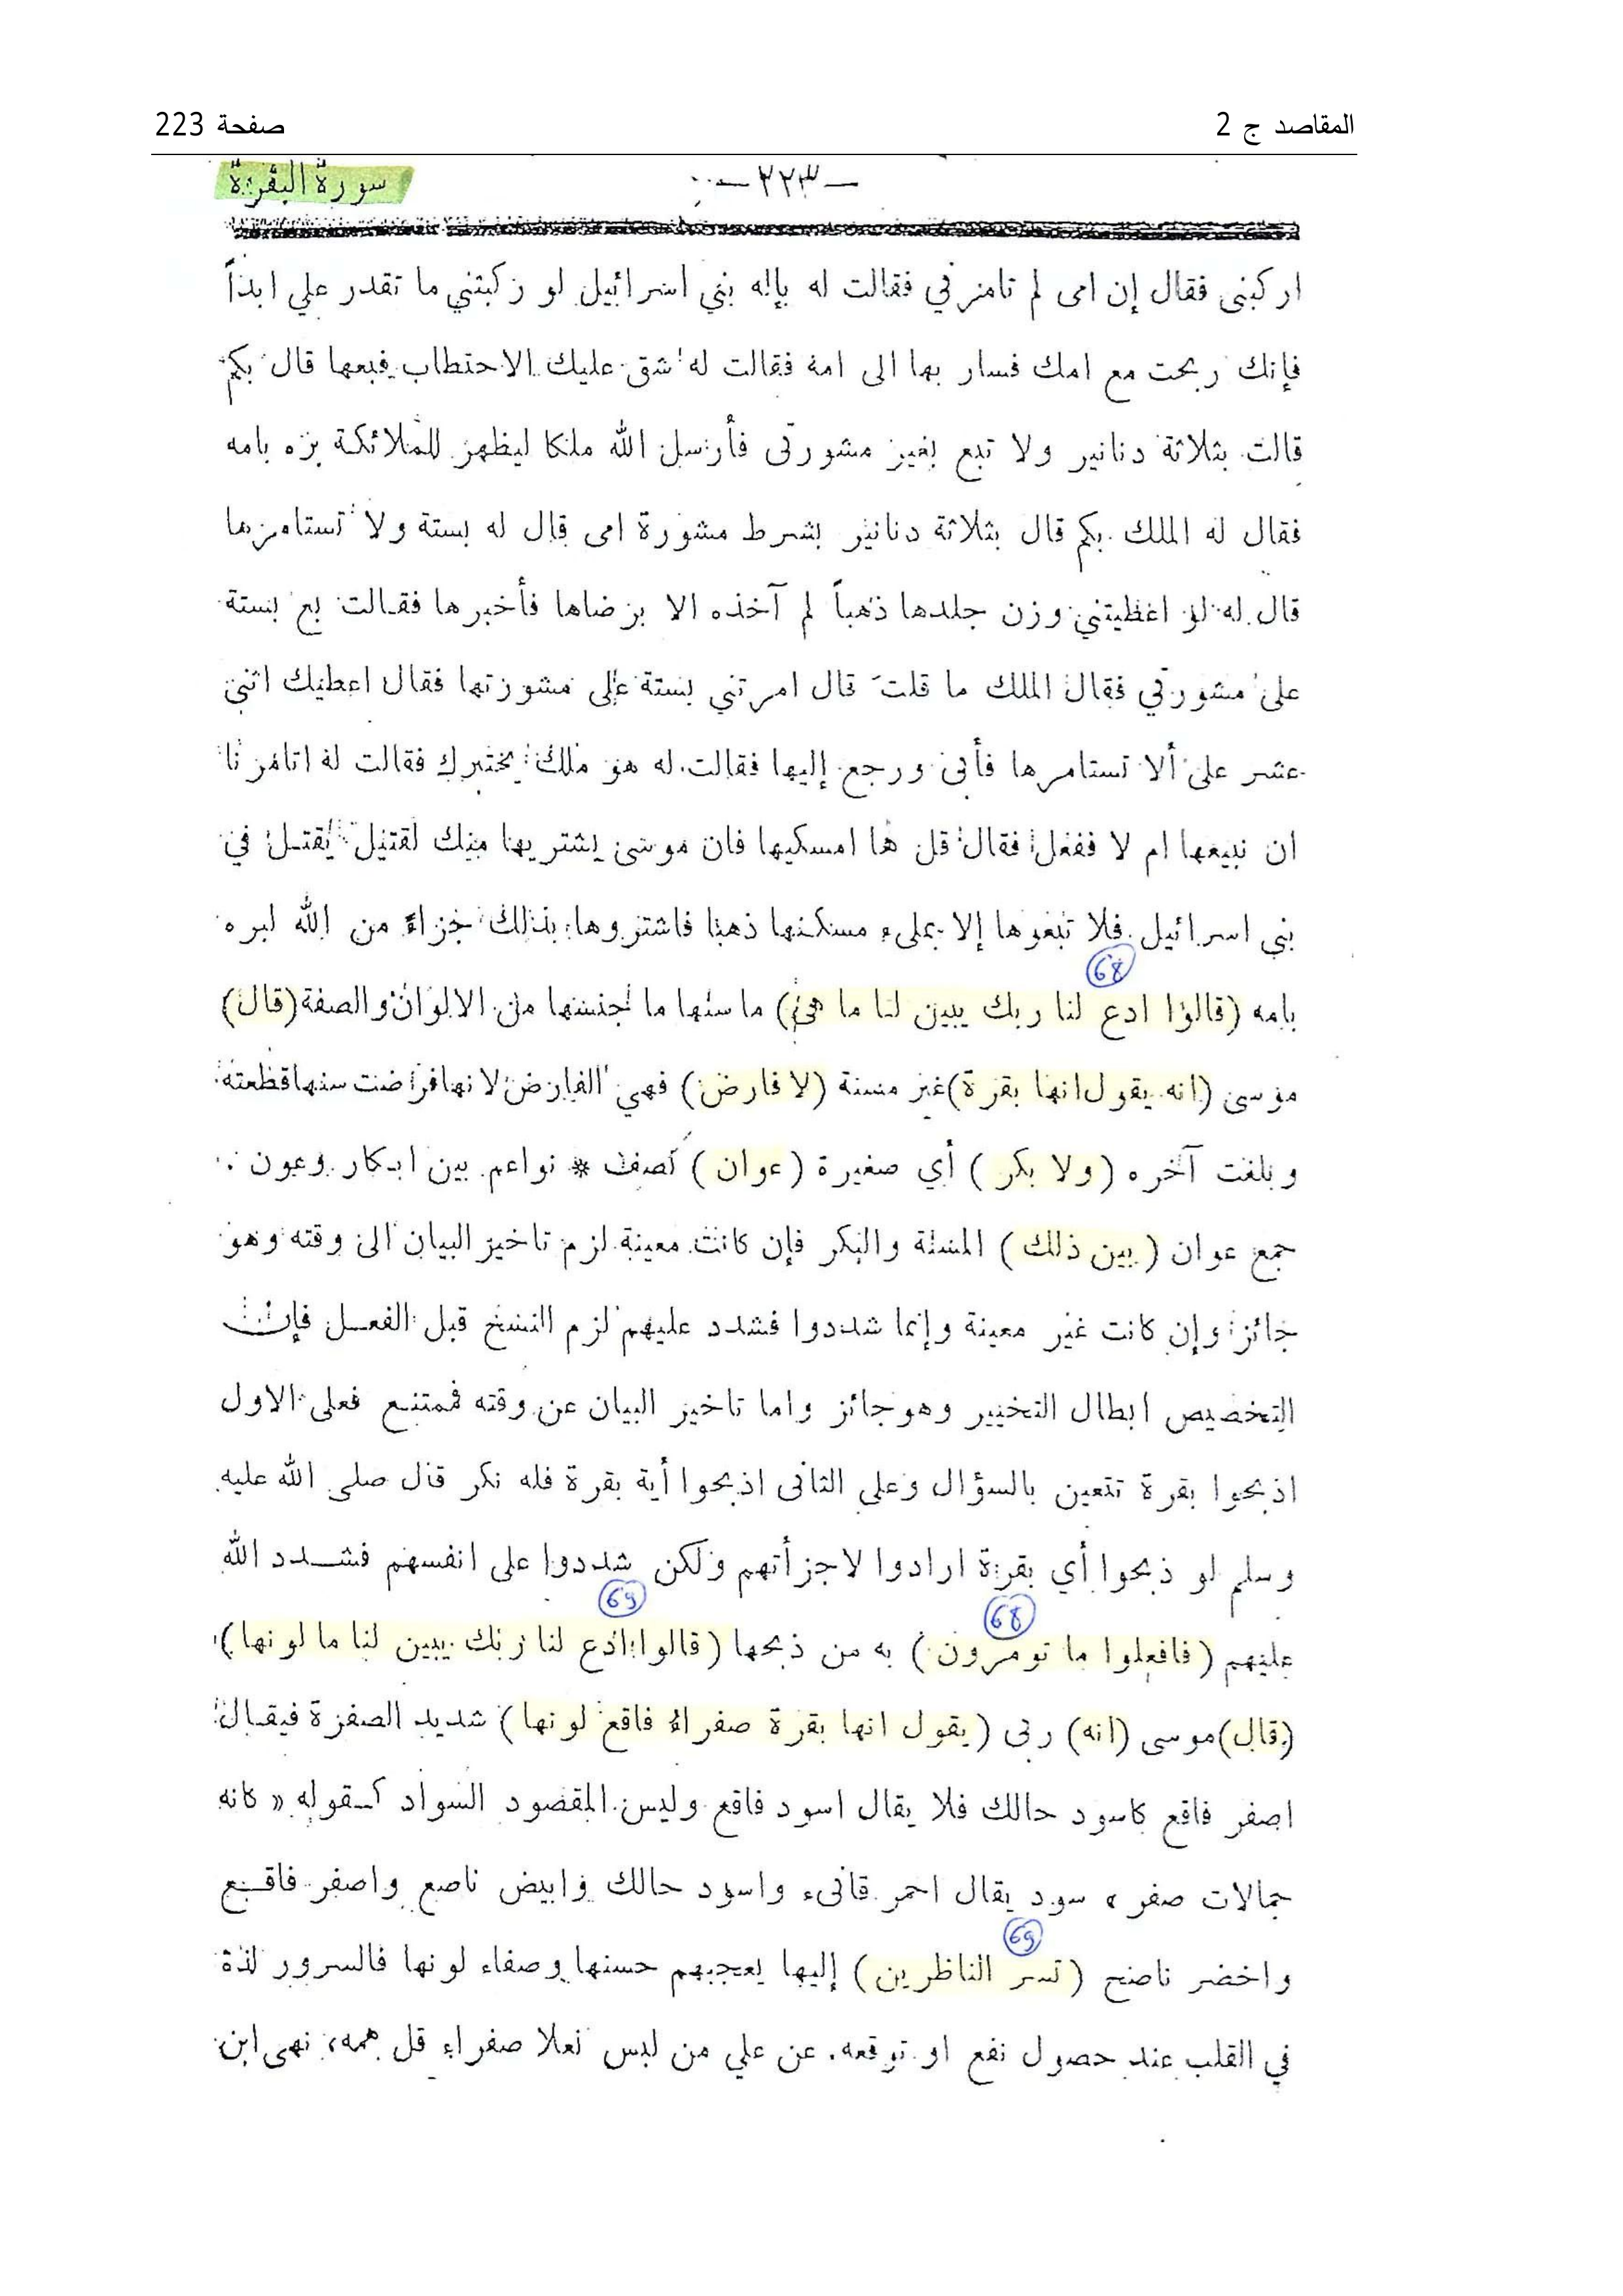 المقاصد ج 2
صفحة 223
— ٢٢٣ —
سورة البقرة
اركبنى فقال إن امى لم تامرني فقالت له بإله بني اسرائيل لو ركبتني ما تقدر علي ابداً
فإنك ربحت مع امك فسار بها الى امه فقالت له شق عليك الاحتطاب فبعها قال بكم
قالت بثلاثة دنانير ولا تبع بغير مشورتى فأرسل الله ملكا ليظهر للملائكة بره بامه
فقال له الملك بكم قال بثلاثة دنانير بشرط مشورة امى قال له بستة ولا تستامرها
قال له لو اعطيتني وزن جلدها ذهباً لم آخذه الا برضاها فأخبرها فقالت بع بستة
على مشورتي فقال الملك ما قلت قال امرتني بستة على مشورتها فقال اعطيك اثني
عشر على ألا تستامرها فأبى ورجع إليها فقالت له هو ملك يختبرك فقالت له اتامرنا
ان نبيعها ام لا ففعل فقال قل لها امسكيها فان موسى يشتريها منك لقتيل يقتل في
بني اسرائيل فلا تبعوها إلا بملىء مسكنها ذهبا فاشتروها بذلك جزاءً من الله لبره
68
بامه (قالوا ادع لنا ربك يبين لنا ما هي) ما سنها ما جنسها من الالوان والصفة (قال)
موسى (انه يقول انها بقرة) غير مسنة (لا فارض) فهي الفارض لانها فرضت سنها قطعته
وبلغت آخره (ولا بكر) أي صغيرة (عوان) نصف * نواعم بين ابكار وعون .
جمع عوان (بين ذلك) المسنة والبكر فإن كانت معينة لزم تاخير البيان الى وقته وهو
جائز وإن كانت غير معينة وإنما شددوا فشدد عليهم لزم النسخ قبل الفعل فإن
التخصيص ابطال التخيير وهو جائز واما تاخير البيان عن وقته فممتنع فعلى الاول
اذبحوا بقرة تتعين بالسؤال وعلى الثانى اذبحوا أية بقرة فله نكر قال صلى الله عليه
وسلم لو ذبحوا أي بقرة ارادوا لاجزأتهم ولكن شددوا على انفسهم فشدد الله
68 69
عليهم (فافعلوا ما تومرون) به من ذبحها (قالوا ادع لنا ربك يبين لنا ما لونها)
(قال) موسى (انه) ربى (يقول انها بقرة صفراءُ فاقع لونها) شديد الصفرة فيقال
اصفر فاقع كاسود حالك فلا يقال اسود فاقع وليس المقصود السواد كقوله « كانه
جمالات صفر » سود يقال احمر قانىء واسود حالك وابيض ناصع واصفر فاقع
69
واخضر ناضح (تسر الناظرين) إليها يعجبهم حسنها وصفاء لونها فالسرور لذة
في القلب عند حصول نفع او توقعه. عن علي من لبس نعلا صفراء قل همه، نهى ابن